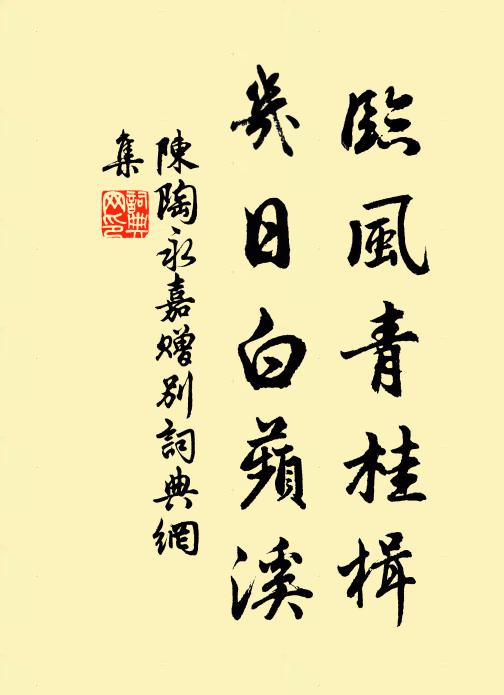 臨風青桂楫
幾日白蘋溪
陳陶永嘉贈別詞典網
集
詞典網印